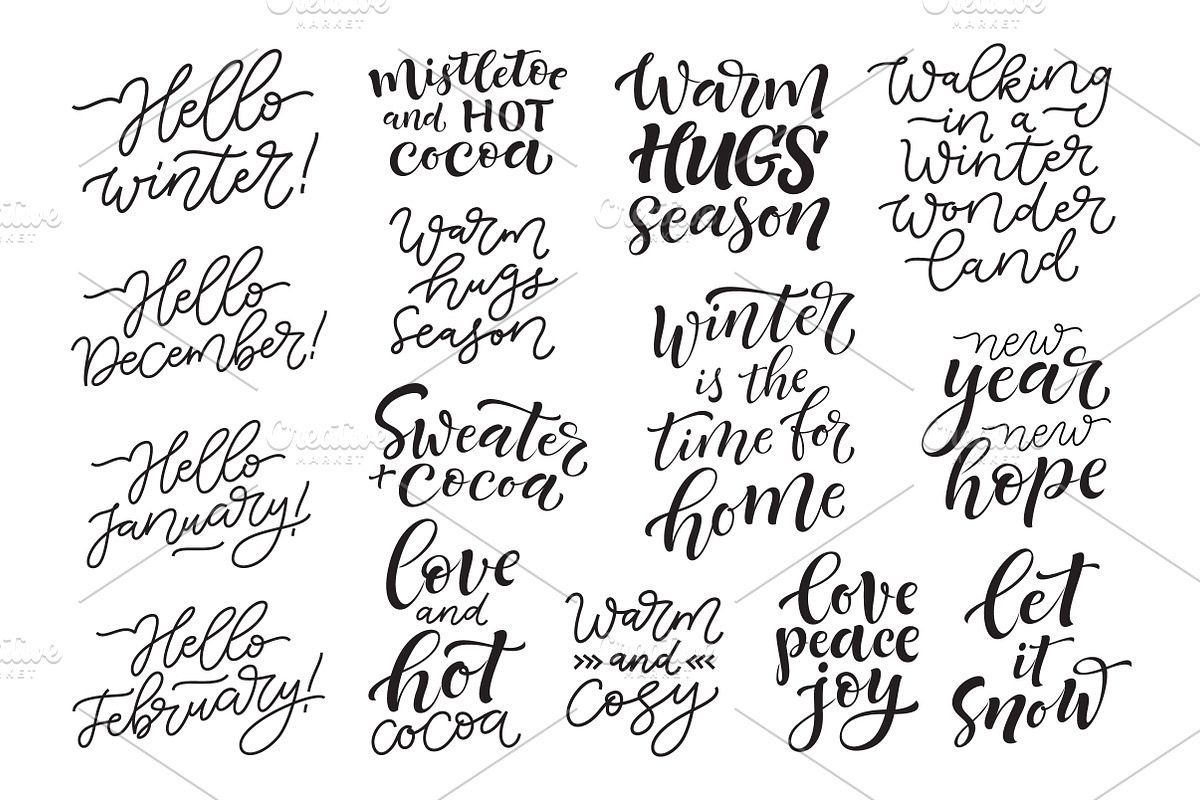 Hello
winter!
Hello
December!
Hello
January!
Hello
February!
mistletoe
and HOT
cocoa
Warm
hugs
season
Sweater
+ cocoa
love
and
hot
cocoa
Warm
HUGS
season
winter
is the
time for
home
Warm
»» and ««
Cosy
Walking
in a
winter
wonder
land
new
year
new
hope
love
peace
joy
let
it
snow
Creative
MARKET